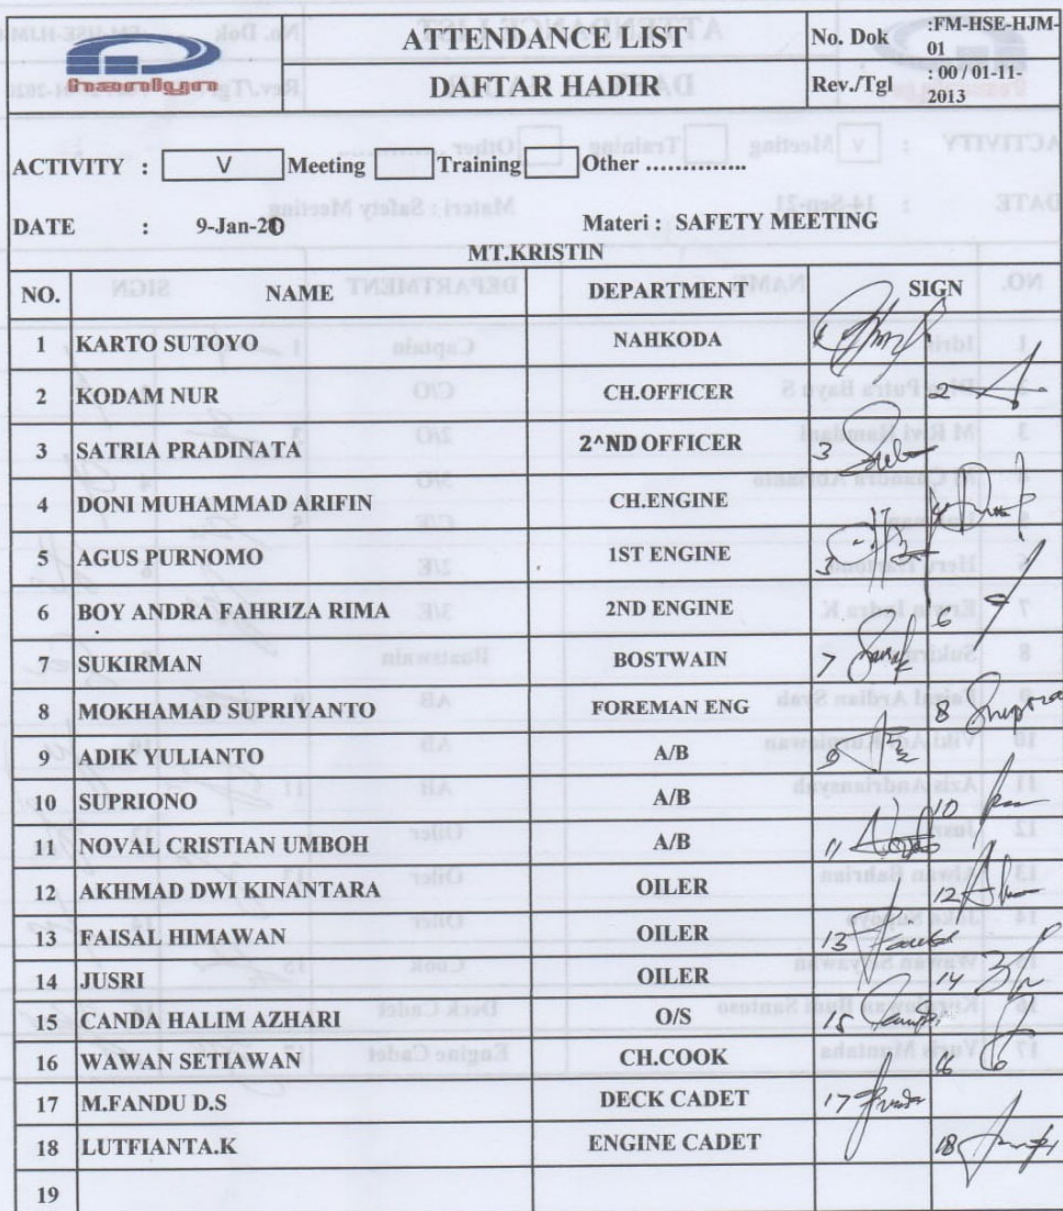 ATTENDANCE LIST
No. Dok :FM-HSE-HJM-01
DAFTAR HADIR
Rev./Tgl : 00 / 01-11-2013
ACTIVITY : V Meeting Training Other ...............
DATE : 9-Jan-20 Materi : SAFETY MEETING
MT.KRISTIN
NO. NAME DEPARTMENT SIGN
1 KARTO SUTOYO NAHKODA
2 KODAM NUR CH.OFFICER 2
3 SATRIA PRADINATA 2^ND OFFICER 3
4 DONI MUHAMMAD ARIFIN CH.ENGINE 4
5 AGUS PURNOMO 1ST ENGINE 5
6 BOY ANDRA FAHRIZA RIMA 2ND ENGINE 6
7 SUKIRMAN BOSTWAIN 7
8 MOKHAMAD SUPRIYANTO FOREMAN ENG 8
9 ADIK YULIANTO A/B 9
10 SUPRIONO A/B 10
11 NOVAL CRISTIAN UMBOH A/B 11
12 AKHMAD DWI KINANTARA OILER 12
13 FAISAL HIMAWAN OILER 13
14 JUSRI OILER 14
15 CANDA HALIM AZHARI O/S 15
16 WAWAN SETIAWAN CH.COOK 16
17 M.FANDU D.S DECK CADET 17
18 LUTFIANTA.K ENGINE CADET 18
19